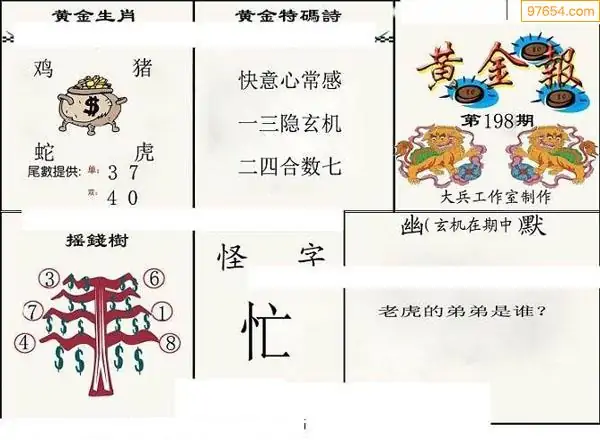 97654.com
黄金生肖
鸡 猪
$
蛇 虎
尾數提供: 单: 3 7
双: 4 0
黄金特碼詩
快意心常感
一三隐玄机
二四合数七
黄金報
第198期
大兵工作室制作
摇錢樹
③ ⑥
⑦ ①
④ ⑧
$ $ $ $ $ $ $ $ $ $ $ $
怪 字
忙
幽(玄机在期中)默
老虎的弟弟是谁?
i